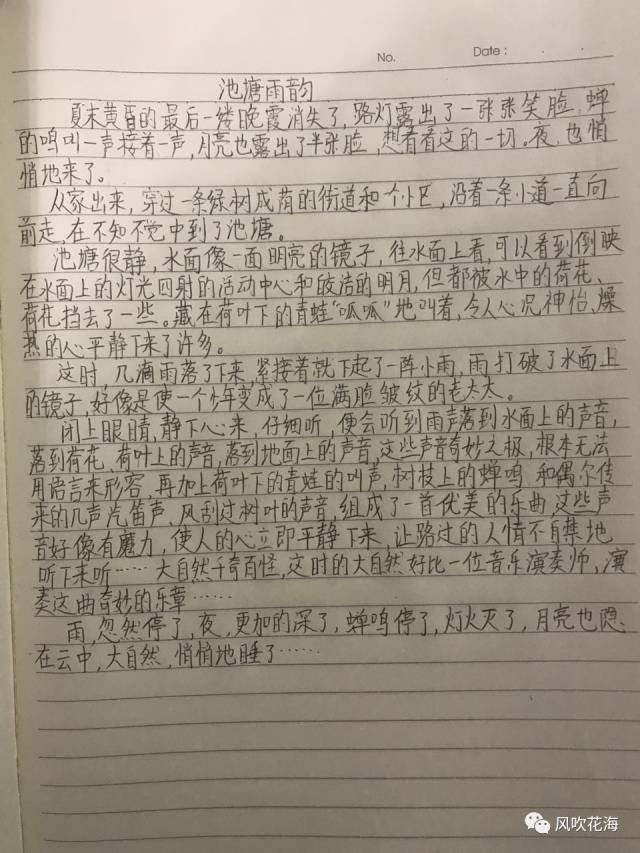 No.
Date :
池塘雨韵
夏末黄昏的最后一缕晚霞消失了,路灯露出了一张张笑脸,蝉
的鸣叫一声接着一声,月亮也露出了半张脸,想看看这的一切。夜,也悄
悄地来了。
从家出来,穿过一条绿树成荫的街道和一个小区,沿着一条小道一直向
前走,在不知不觉中到了池塘。
池塘很静,水面像一面明亮的镜子,往水面上看,可以看到倒映
在水面上的灯光四射的活动中心和皎洁的明月,但都被水中的荷花、
荷花,挡去了一些。藏在荷叶下的青蛙“呱呱”地叫着,令人心况神怡、燥
热的心平静下来了许多。
这时,几滴雨落了下来,紧接着就下起了一阵小雨,雨打破了水面上
的镜子,好像是使一个少年变成了一位满脸皱纹的老太太。
闭上眼睛,静下心来,仔细听,便会听到雨声落到水面上的声音,
落到荷花,荷叶上的声音,落到地面上的声音,这些声音奇妙之极,根本无法
用语言来形容,再加上荷叶下的青蛙的叫声,树枝上的蝉鸣,和偶尔传
来的几声汽笛声,风刮过树叶的声音,组成了一首优美的乐曲,这些声
音好像有魔力,使人的心立即平静下来,让路过的人情不自禁地
听下来听……大自然千奇百怪,这时的大自然好比一位音乐演奏师,演
奏这曲奇妙的乐章……
雨,忽然停了,夜,更加的深了,蝉鸣停了,灯火灭了,月亮也隐
在云中,大自然,悄悄地睡了……
风吹花海